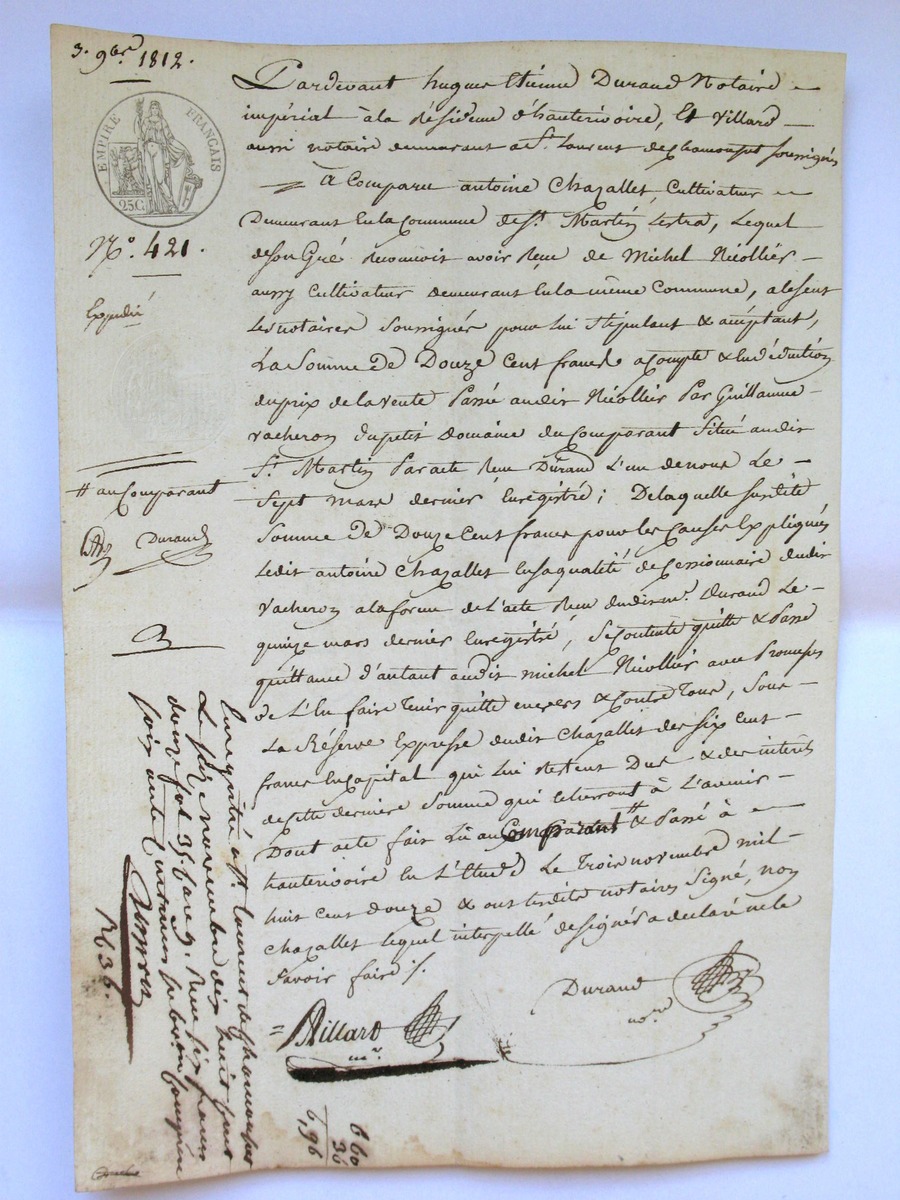 3. 9bre 1812.
EMPIRE FRANÇAIS
25.C.
N.° 421.
Expédié
Pardevant hugues Etienne Durand Notaire
impérial à la Résidence d'hauterivoire, Et Villard
aussi notaire demeurant a St. Laurent de chamousset soussignés
= a Comparu antoine Chazallet, Cultivateur
Demeurant En la Commune de St. Martin Lestra, Lequel
de son Gré Reconnoit avoir Reçu de Michel Néollier
aussy Cultivateur demeurant En la même Commune, absent
Les notaires Soussignés pour lui Stipulant & acceptant,
La Somme de Douze Cent francs a Compte & En déduction
du prix de la vente Passé audit Néollier Par Guillaume
vacheron du petit Domaine du Comparant Situé audit
St. Martin Par acte Reçu Durand L'un de nous Le
Sept mars dernier Enregistré; De laquelle susdite
Somme de Douze Cent francs pour les Causes Expliquées
Ledit antoine Chazallet En sa qualité de Cessionnaire dudit
Vacheron a la forme de L'acte Reçu dudit me. Durand Le
quinze mars dernier Enregistré, Se Contente quitte & Passe
quittance d'autant audit michel Néollier avec Promesse
de L'En faire Tenir quitte envers & Contre Tous, Sous
La Réserve Expresse dudit Chazallet des Six Cent
francs En Capital qui Lui Restent Dus & des intérêts
de Cette dernière Somme qui Echerront à L'avenir
Dont acte fait Lu au Comparant # & Passé à
hauterivoire En L'Etude Le Trois novembre mil
huit Cent douze & ont Lesdits notaires Signé, non
Chazallet lequel interpellé de signer a déclaré ne le
Savoir faire ./.
# au Comparant
Durand
Durand
nore
= Villard
nre
Enregistré a St. Laurent de Chamousset
Le dix novembre dix huit cent
douze fol 35. Case 9. Reçu six francs
soixante Centimes subvention Comprise
R 6 36.
6 60
36
6,96